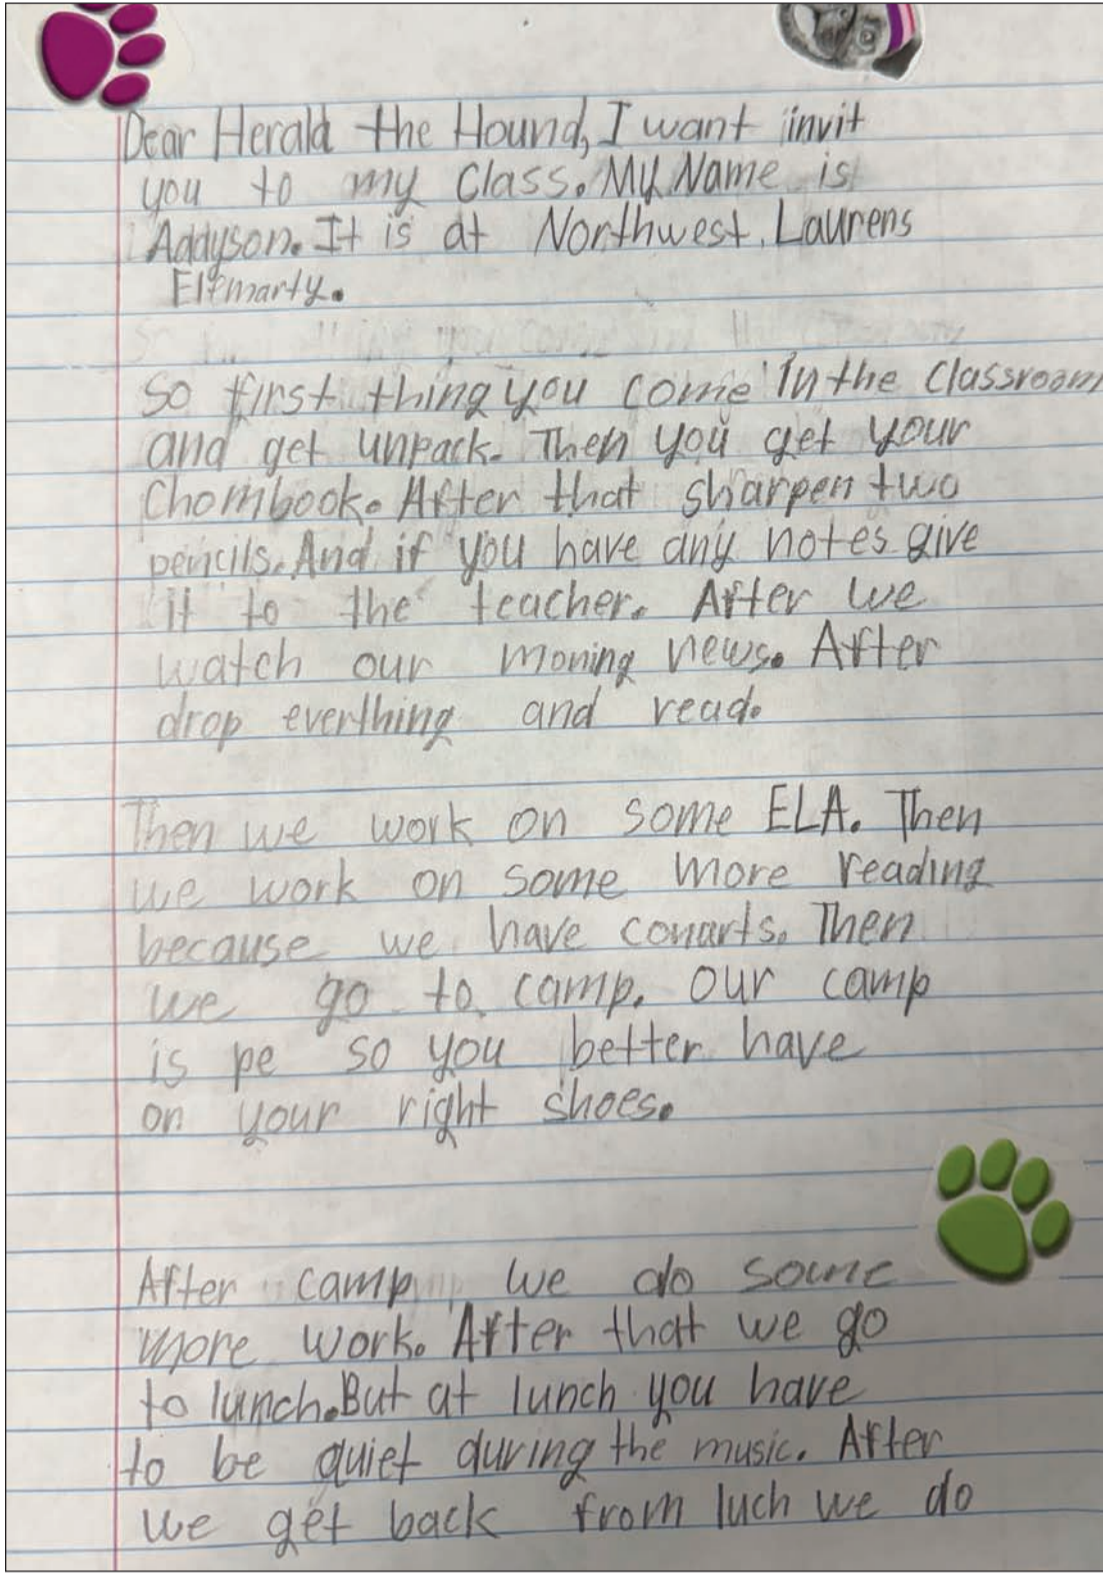 Dear Herald the Hound, I want invit
you to my Class. My Name is
Addyson. It is at Northwest Laurens
Elemarty.
So first thing you come in the classroom
and get unpack. Then you get your
Chombook. After that sharpen two
pencils. And if you have any notes give
it to the teacher. After we
watch our moning news. After
drop everthing and read.
Then we work on some ELA. Then
we work on some more reading
because we have conarts. Then
we go to camp. our camp
is pe so you better have
on your right shoes.
After camp we do some
more work. After that we go
to lunch. But at lunch you have
to be quiet during the music. After
we get back from luch we do